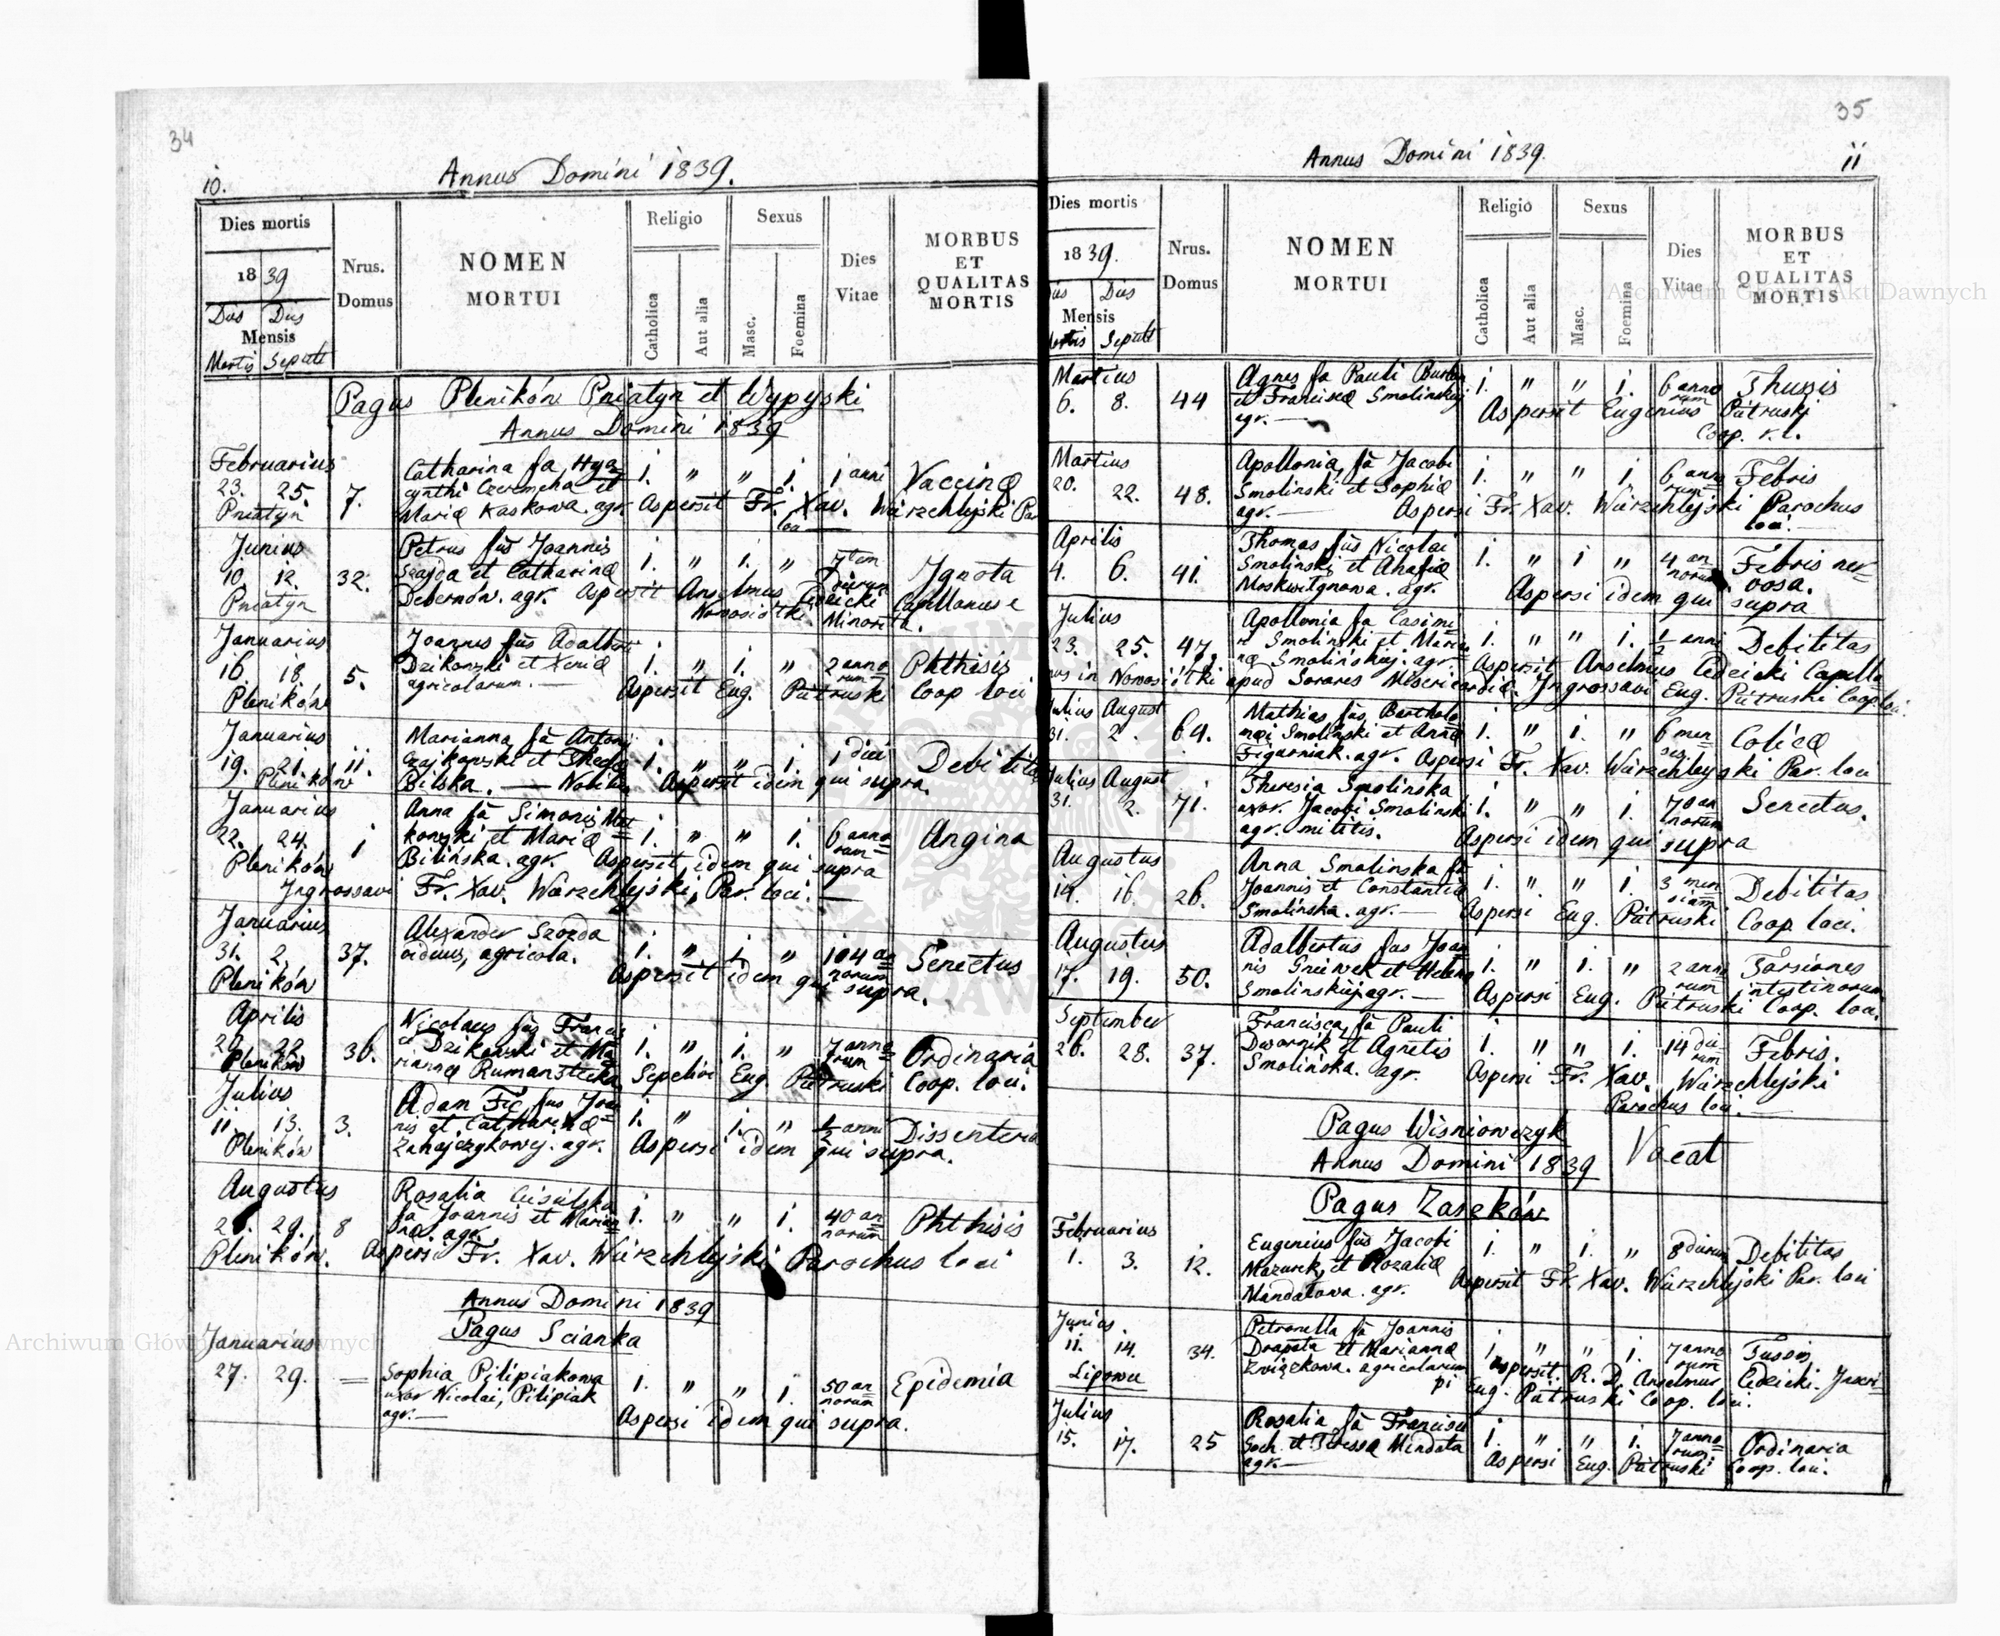 34
10.
Annus Domini 1839.
Dies mortis
Nrus. Domus
NOMEN MORTUI
Religio
Sexus
Dies Vitae
MORBUS ET QUALITAS MORTIS
1839
Catholica
Aut alia
Masc.
Foemina
Mensis
Mortis
Pagus Pleników Pniatyn et Wypyski
Annus Domini 1839
Februarius Catharina fa Hya=
23. 25. 7. cynthi Czeremcha et 1. " " 1. 1 anni Vaccinæ
Pniatyn Mariæ Kaskowa. agr. Aspersit Fr. Xav. Wárzchlejski Par
loci
Junius Petrus fús Joannis
10. 12. 32. et Catharinæ 1. " 1. " 7tem dierum Ignota
Pniatyn agr. Aspersit Anselmus Cedzicki Capellanus e
Nowosiółki Minorith.
Januarius Joannes fús Adalberti
16. 18. 5. Dzikowski et Xeniæ 1. " 1. " 2 annorum Phthisis
Pleników agricolarum. Aspersit Eug. Pátruski Coop loci
Januarius Marianna fà Antoni
19. 21. 11. 1. " " 1. 1 diei Debilitas
Pleników Bilska. Nobiliu Aspersit idem qui supra.
Januarius Anna fà Simonis
22. 24. 1 et Mariæ 1. " " 1. 6 annorum Angina
Pleników Bilińska. agr. Aspersit idem qui supra
Ingrossavi Fr. Xav. Wárzchlejski, Par. loci.
Januarius Alexander Szozda
31. 2. 37. viduus, agricola. 1. " 1. " 104 annorum Senectus
Pleników Aspersit idem qui supra.
Aprilis Nicolaus fús Francis
22. 36. ci Dzikowski et Ma= 1. " 1. " 7 annorum Ordinaria
Pleników riannæ Sepelivi Eug. Pátruski Coop. loci.
Julius Adam fús Joan
11. 13. 3. nis et Catharinæ 1. " 1. " ½ anni Dissenteria
Pleników Zahajczykowej. agr. Aspersi idem qui supra.
Augustus Rosalia
29. 8 fa Joannis et Marian= 1. " " 1. 40 annorum Phthisis
næ. agr.
Pleników. Aspersi Fr. Xav. Wárzchlejski Parochus loci
Annus Domini 1839
Pagus Scianka
Januarius
27. 29. = Sophia Pilipiakowa 1. " " 1. 50 annorum Epidemia
uxor Nicolai, Pilipiak
agr. Aspersi idem qui supra.
35
11
Annus Domini 1839.
Dies mortis
Nrus. Domus
NOMEN MORTUI
Religio
Sexus
Dies Vitae
MORBUS ET QUALITAS MORTIS
1839.
Catholica
Aut alia
Masc.
Foemina
Mensis
Martius Agnes fa Pauli
6. 8. 44 et Franciscæ Smolinskiej 1. " " 1. 6 annorum Thussis
agr. Aspersit Eugenius Pátruski
Coop. r. l.
Martius Apollonia, fà Jacobi
20. 22. 48. Smolinski et Sophiæ 1. " " 1. 6 annorum Febris
agr. Aspersi Fr. Xav. Wárzchlejski Parochus
loci.
Aprilis Thomas fús Nicolai
4. 6. 41. Smolinski, et Anastæ 1. " 1 " 4 annorum Febris ner=
agr. vosa.
Aspersi idem qui supra
Julius Apollonia fa Casimi=
23. 25. 47. ri Smolinski et Marian 1. " " 1. ½ anni Debilitas
næ Smolińskiej. agr. Aspersit Anselmus Cedzicki Capella
nus in Nowosiółki apud Sorores Misericordiæ. Ingrossavi Eug. Pátruski Coop loci.
Julius August Mathias fús Bartholo=
31. 2. 69. mæi Smolinski et Annæ 1. " 1. " 6 mensis Colicæ
Figurniak. agr. Aspersi Fr. Xav. Wárzchlejski Par. loci
Julius August Theresia Smolinska
31. 2. 71. uxor. Jacobi Smolinski 1. " " 1. 70 annorum Senectus.
agr. militis. Aspersi idem qui supra
Augustus Anna Smolinska fà
14. 16. 26. Joannis et Constantiæ 1. " " 1. 3 mensium Debilitas
Smolińska. agr. Aspersi Eug. Pátruski Coop loci.
Augustus Adalbertus fús Joan
17. 19. 50. nis Gniewek et Helenæ 1. " 1. " 2 annorum Torsiones
Smolinskiej. agr. intestinorum
Aspersi Eug. Pátruski Coop. loci.
September Francisca, fà Pauli
26. 28. 37. Dwornik et Agnetis 1. " " 1. 14 dierum Febris.
Smolińska. agr. Aspersi Fr. Xav. Wárzchlejski
Parochus loci.
Pagus Wisniowczyk
Annus Domini 1839 Vacat
Pagus Zasekźów
Februarius Eugenius fús Jacobi
1. 3. 12. Mazurek, et Rozaliæ 1. " 1. " 8 dierum Debilitas
Mindatowa. agr. Aspersit Fr. Xav. Wárzchlejski Par. loci
Junius. Petronella fà Joannis
11. 14. 34. Drapata et Mariannæ 1. " " 1. 7 annorum Tussis
Lipowce Związkowa. agricolarum Aspersit. R. D. Anselmus Cedzicki. Inscri=
pi Eug. Pátruski Coop. loci.
Julius Rosalia fà Francisci
15. 17. 25 Soch. et Teressæ Mindata 1. " " 1. 7 annorum Ordinaria
agr. Aspersi Eug. Pátruski Coop. loci.
Archiwum Główne Akt Dawnych
Archiwum Główne Akt Dawnych